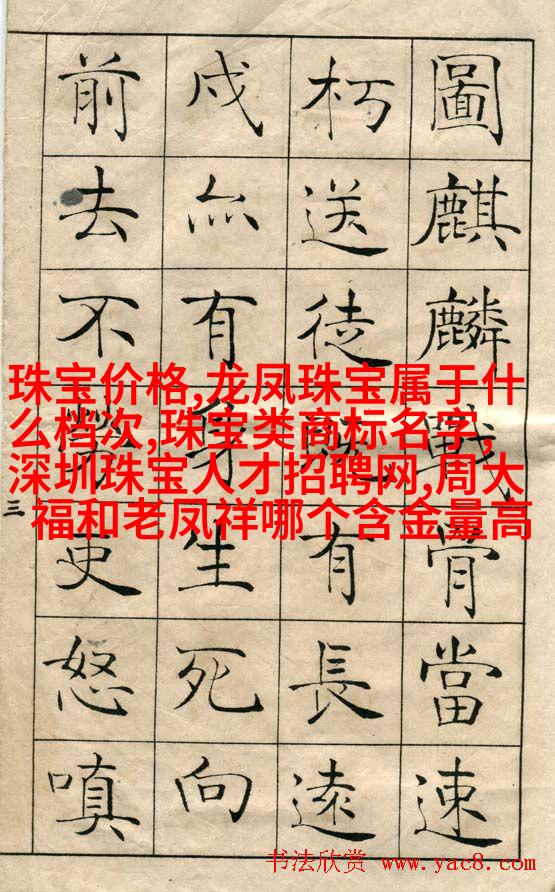 圖麒麟戰骨當速
朽送徒既有長遠
戍亦有身生死向
前去不勞吏怒嗔
三
珠宝价格,龙凤珠宝属于什
么档次,珠宝类商标名字,
深圳珠宝人才招聘网,周大
福和老凤祥哪个含金量高
书法欣赏 www.yac8.com